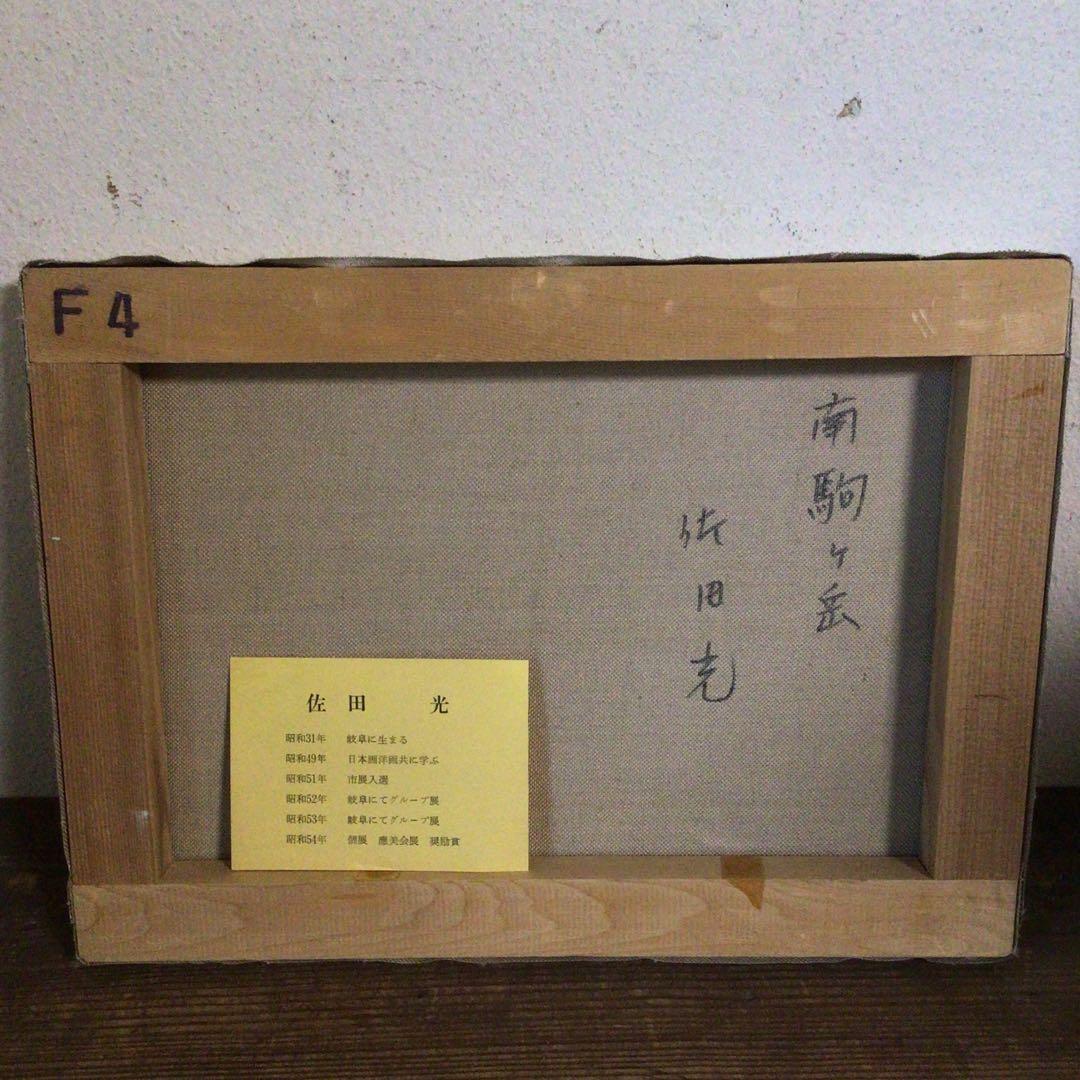 F4
南駒ヶ岳
佐田光
佐田 光
昭和31年 岐阜に生まる
昭和49年 日本画洋画共に学ぶ
昭和51年 市展入選
昭和52年 岐阜にてグループ展
昭和53年 岐阜にてグループ展
昭和54年 個展 應美会展 奨励賞